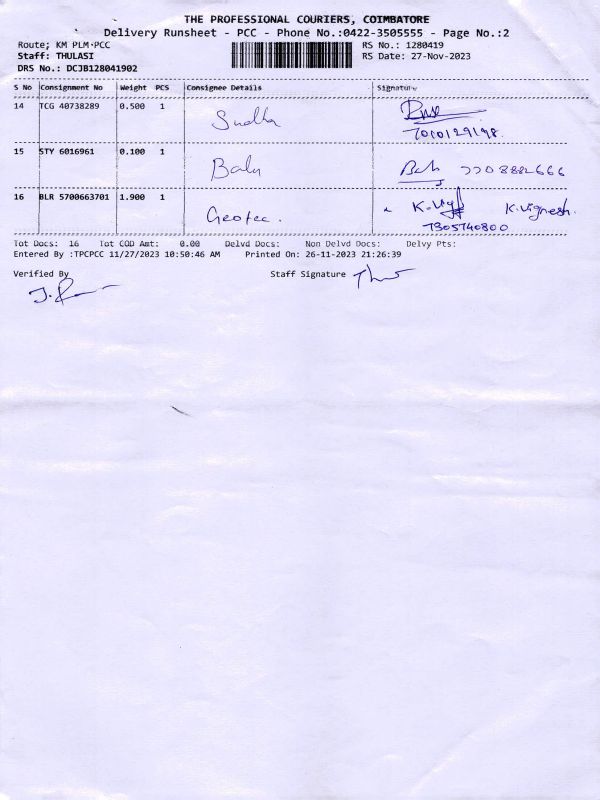 THE PROFESSIONAL COURIERS, COIMBATORE
Delivery Runsheet - PCC - Phone No.:0422-3505555 - Page No.:2
Route; KM PLM-PCC
RS No.: 1280419
Staff: THULASI
RS Date: 27-Nov-2023
DRS No.: DCJB128041902
S No Consignment No Weight PCS Consignee Details Signature
14 TCG 40738289 0.500 1 Sudha
7010129198
15 STY 6016961 0.100 1 Balu 7708882666
16 BLR 5700663701 1.900 1 Geotec. K.Vignesh.
7305740800
Tot Docs: 16 Tot COD Amt: 0.00 Delvd Docs: Non Delvd Docs: Delvy Pts:
Entered By :TPCPCC 11/27/2023 10:50:46 AM Printed On: 26-11-2023 21:26:39
Verified By Staff Signature